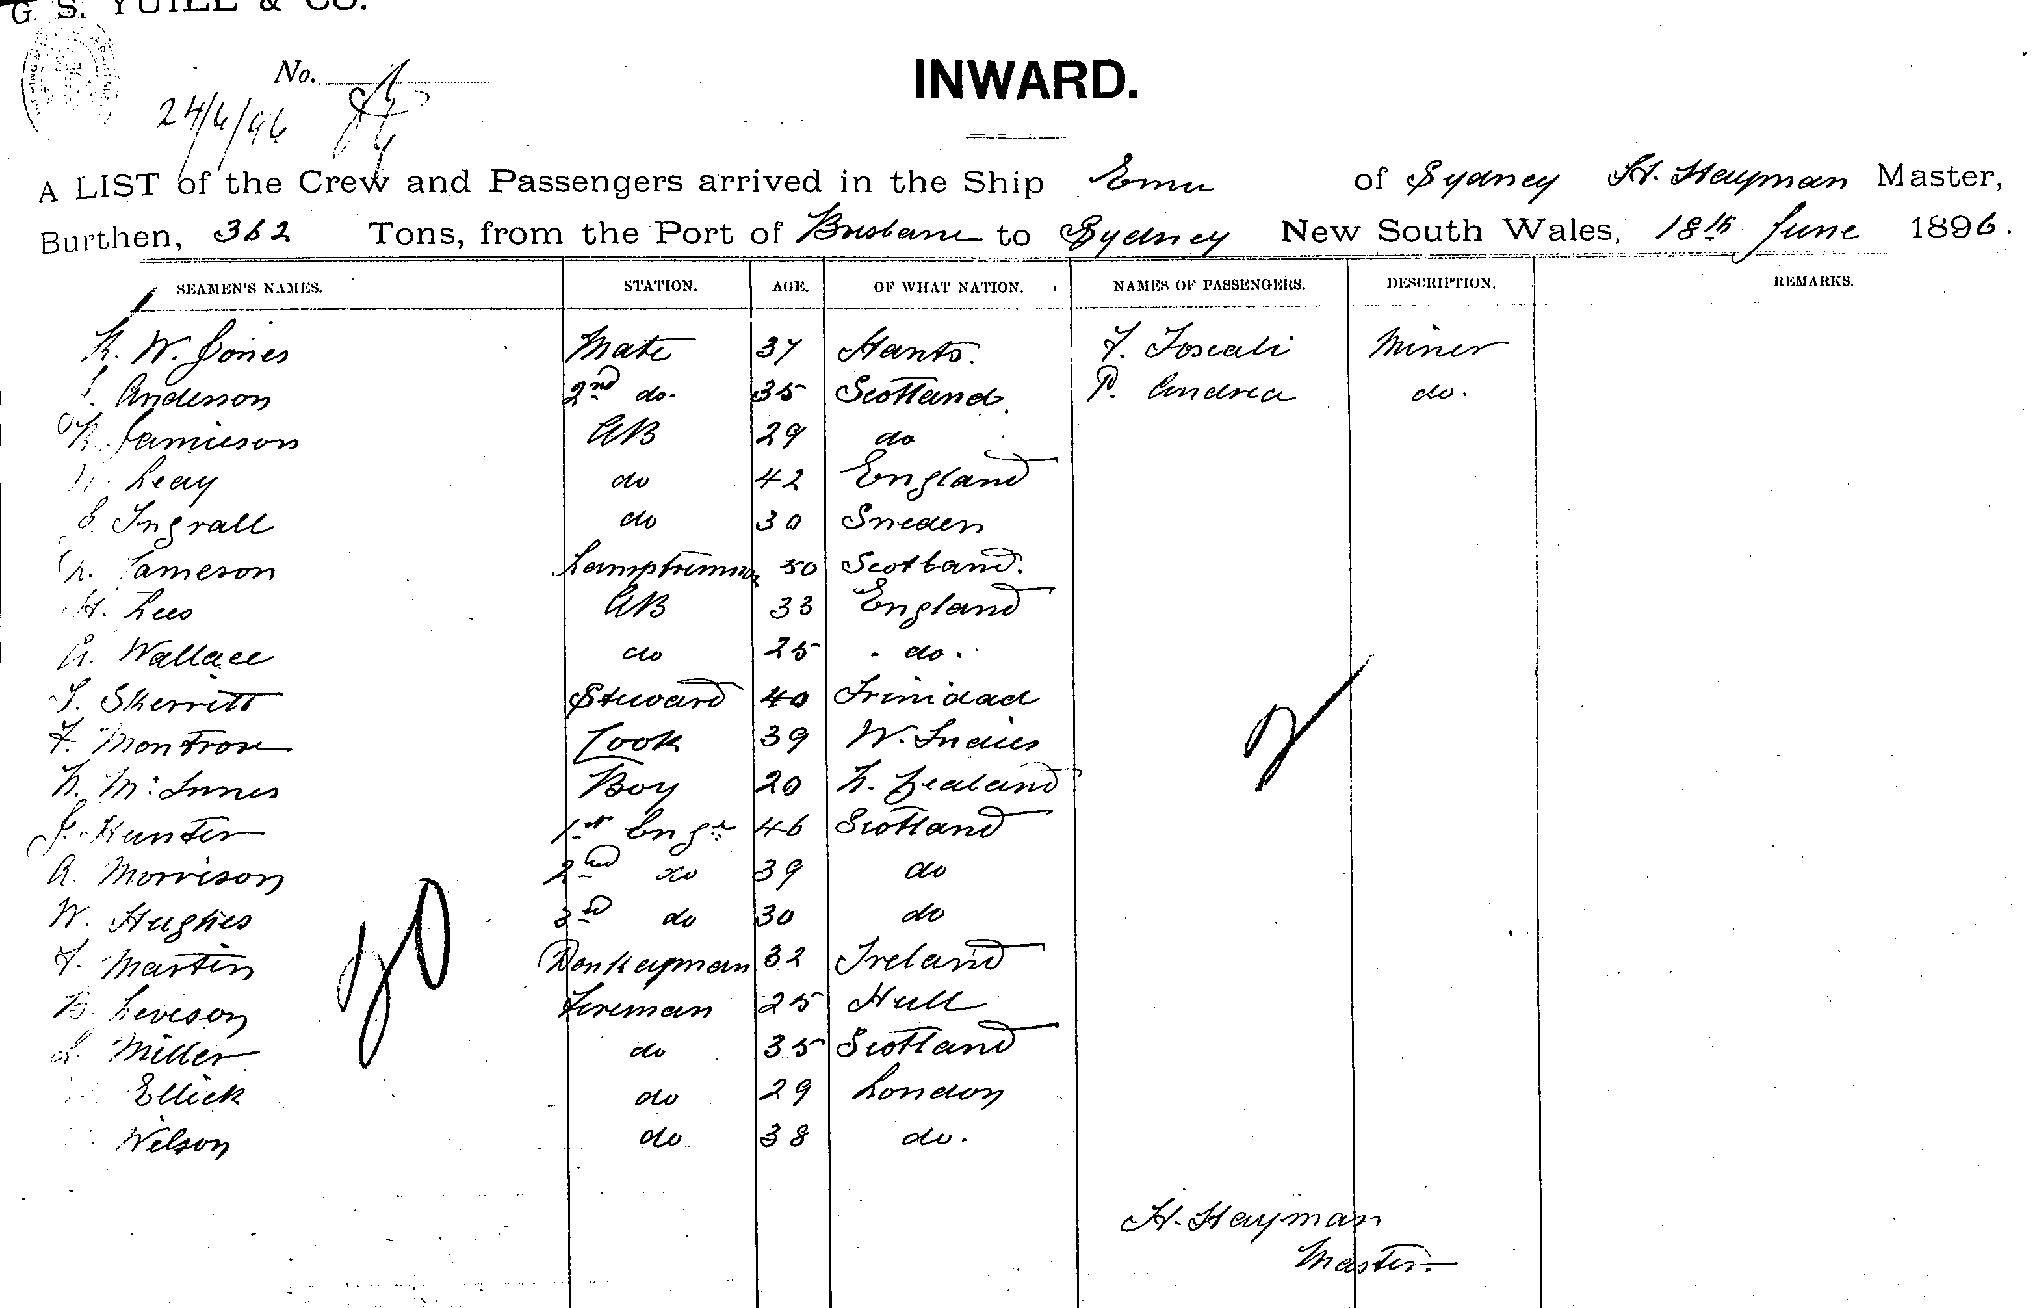 G. S. YUILL & CO.
No.
24/6/96
INWARD.
A LIST of the Crew and Passengers arrived in the Ship Emu of Sydney H. Hayman Master,
Burthen, 362 Tons, from the Port of Brisbane to Sydney New South Wales, 18th June 1896.
SEAMEN'S NAMES. STATION. AGE. OF WHAT NATION. NAMES OF PASSENGERS. DESCRIPTION. REMARKS.
R. W. Jones Mate 37 Hants. F. Toscali Miner
Anderson 2nd do. 35 Scotland P. Andrea do.
Jamieson AB 29 do
Leay do 42 England
Ingrall do 30 Sweden
Jameson Lamptrimmer 50 Scotland.
H. Lees AB 33 England
A. Wallace do 25 do.
Skerritt Steward 40 Trinidad
F. Montrose Cook 39 W. Indies
N. McInnes Boy 20 N. Zealand
J. Hunter 1st Engr 46 Scotland
A. Morrison 2nd do 39 do
W. Hughes 3rd do 30 do
F. Martin Donkeyman 32 Ireland
B. Leveson Fireman 25 Hull
Miller do 35 Scotland
Ellick do 29 London
Wilson do 38 do.
H. Hayman
Master.